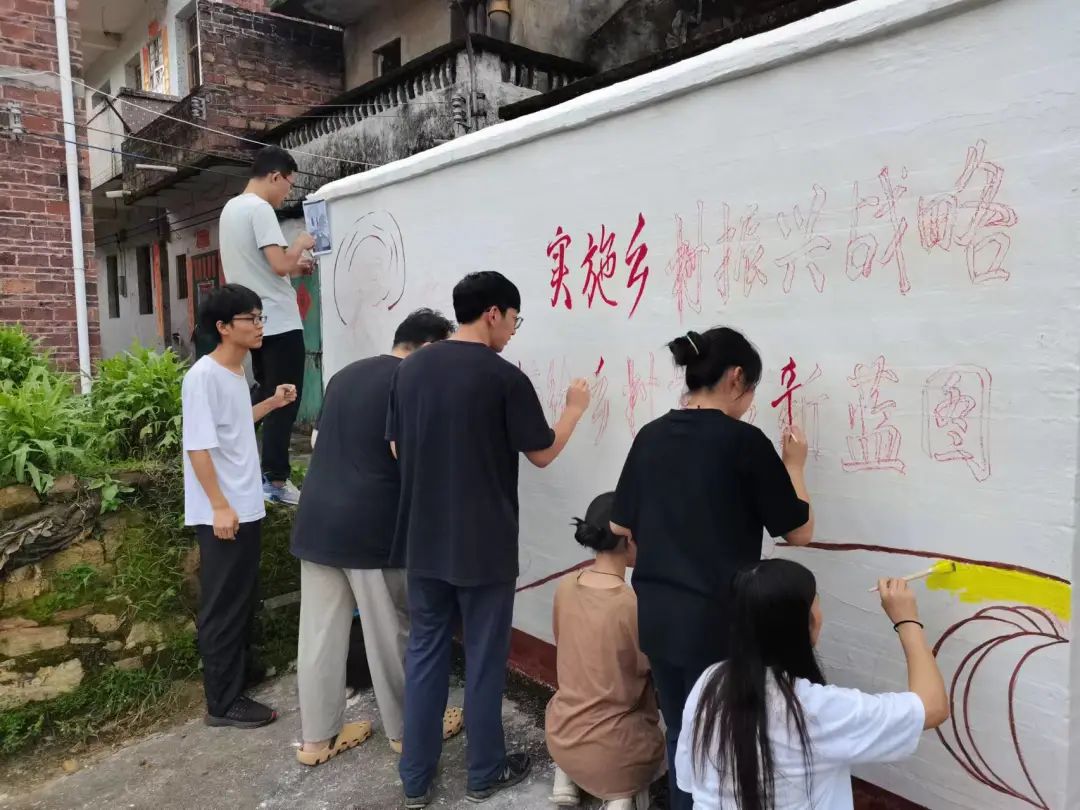 实施乡村振兴战略
绘乡村 新蓝图